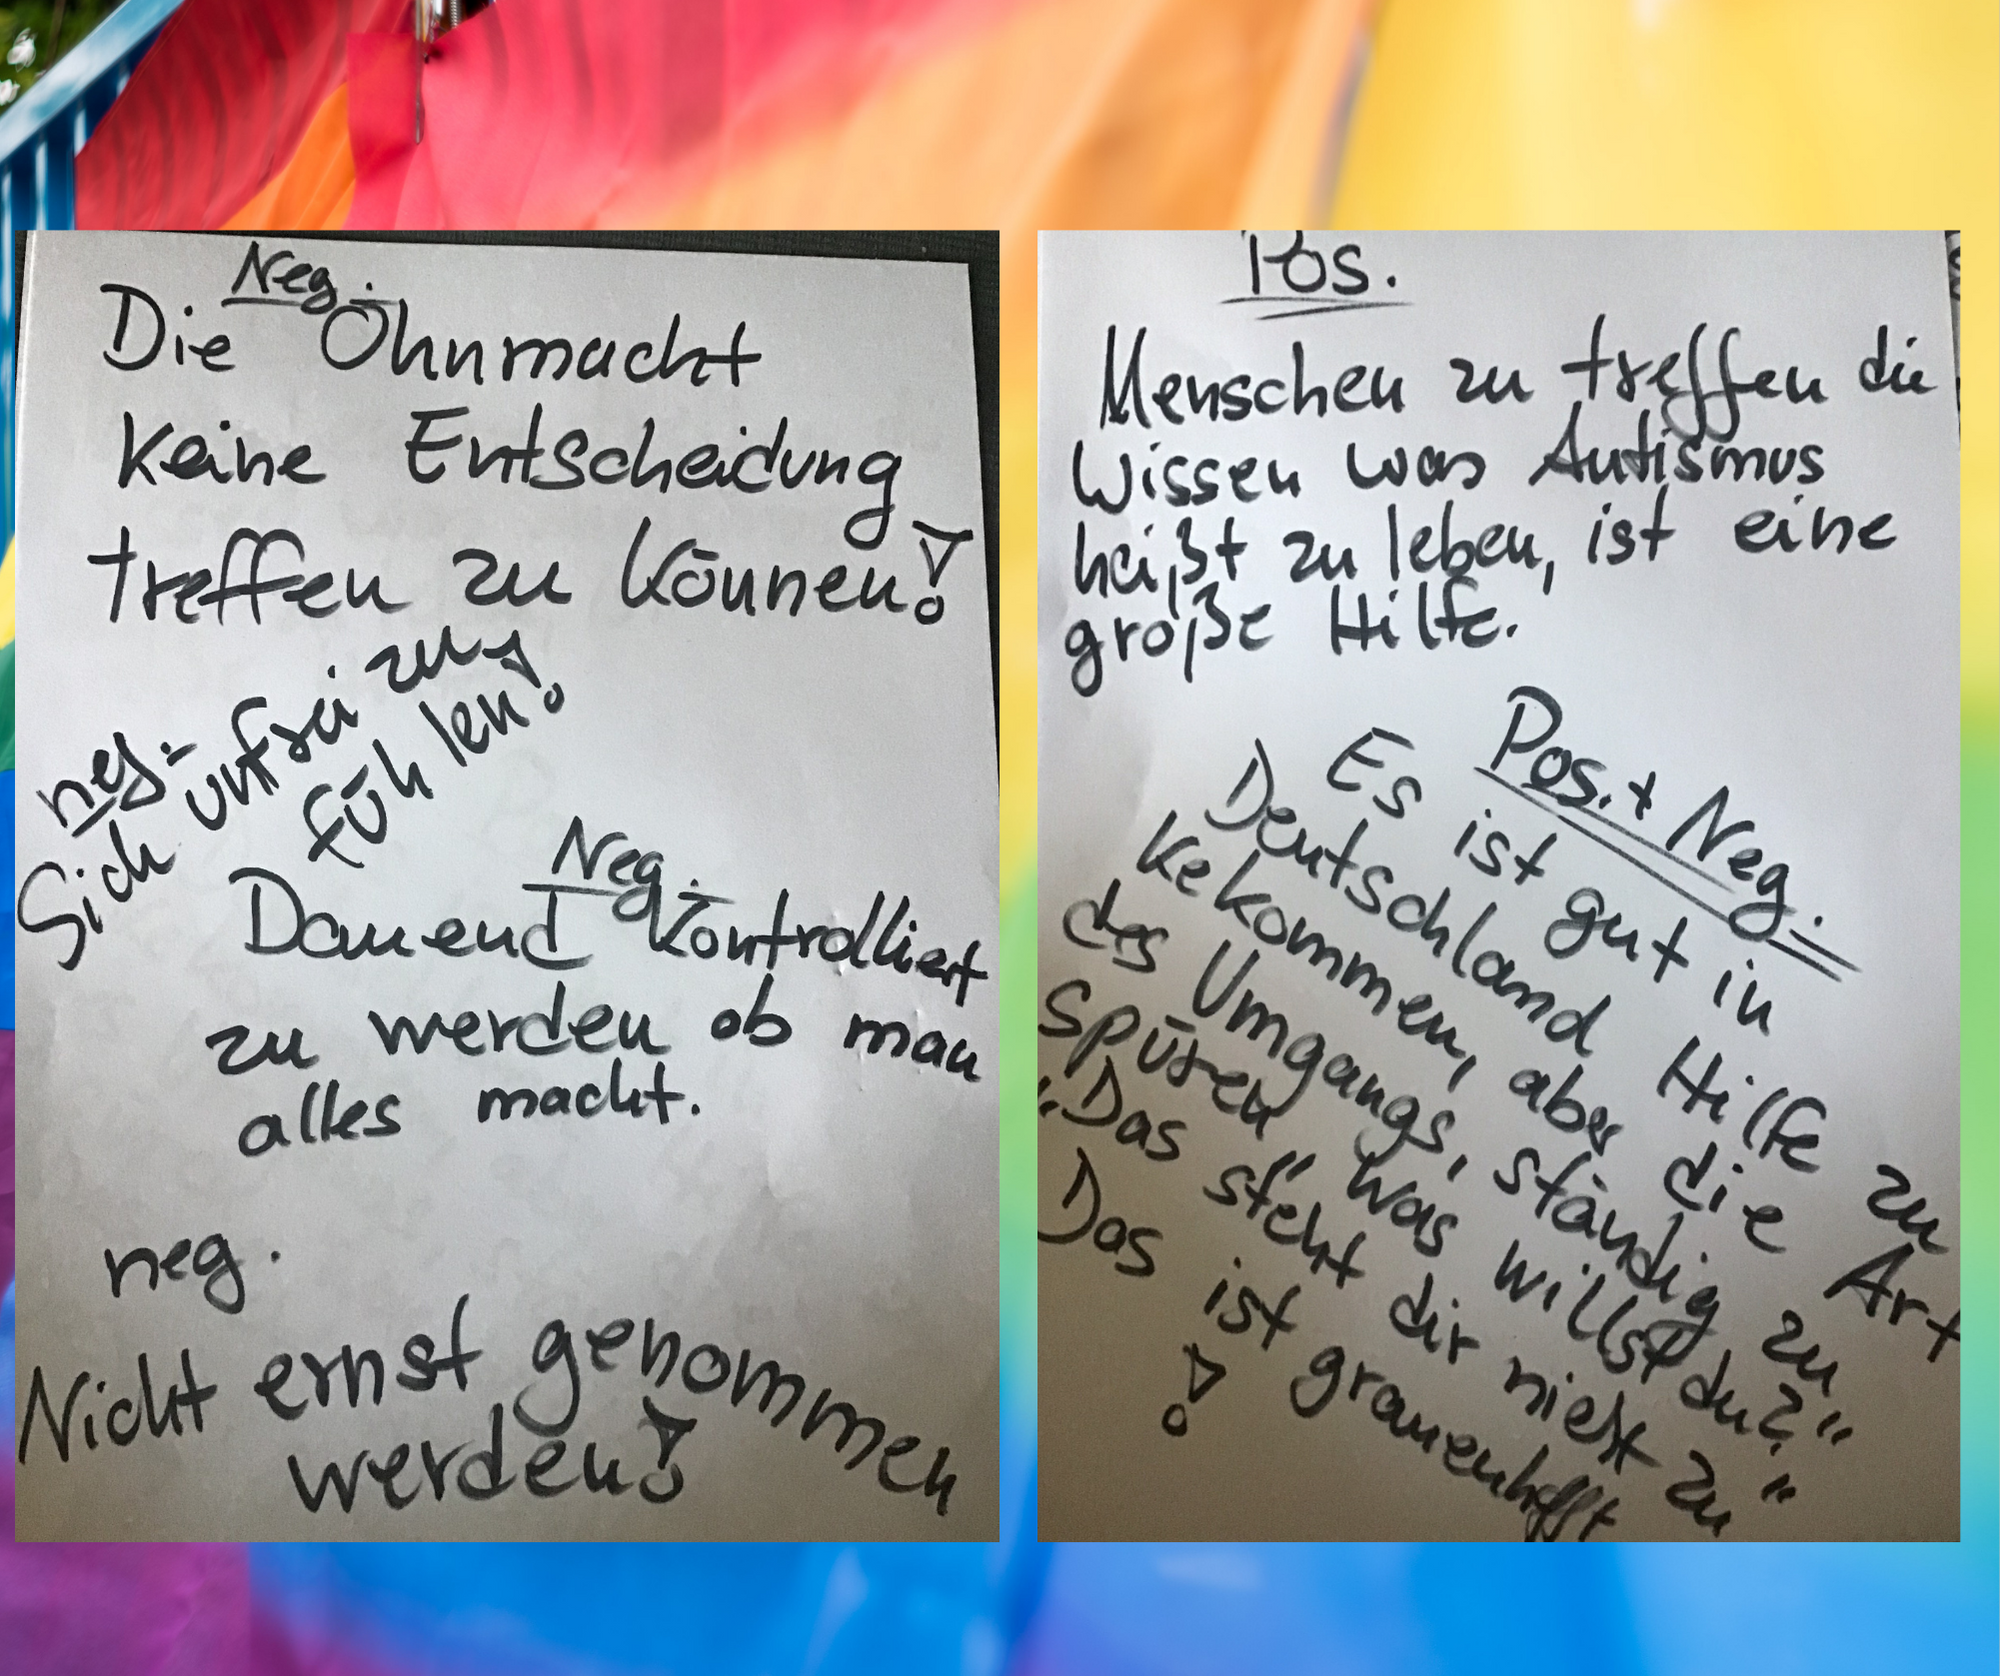 Neg.
Die Ohnmacht
keine Entscheidung
treffen zu können!
neg.
Sich unfrei zu
fühlen!
Neg.
Dauend kontrolliert
zu werden ob man
alles macht.
neg.
Nicht ernst genommen
werden!
Pos.
Menschen zu treffen die
wissen was Autismus
heißt zu leben, ist eine
große Hilfe.
Pos. + Neg.
Es ist gut in
Deutschland Hilfe zu
kekommen, aber die Art
des Umgangs, ständig zu
spüren "was willst du?"
"Das steht dir nicht zu"
Das ist grauenhafft
!